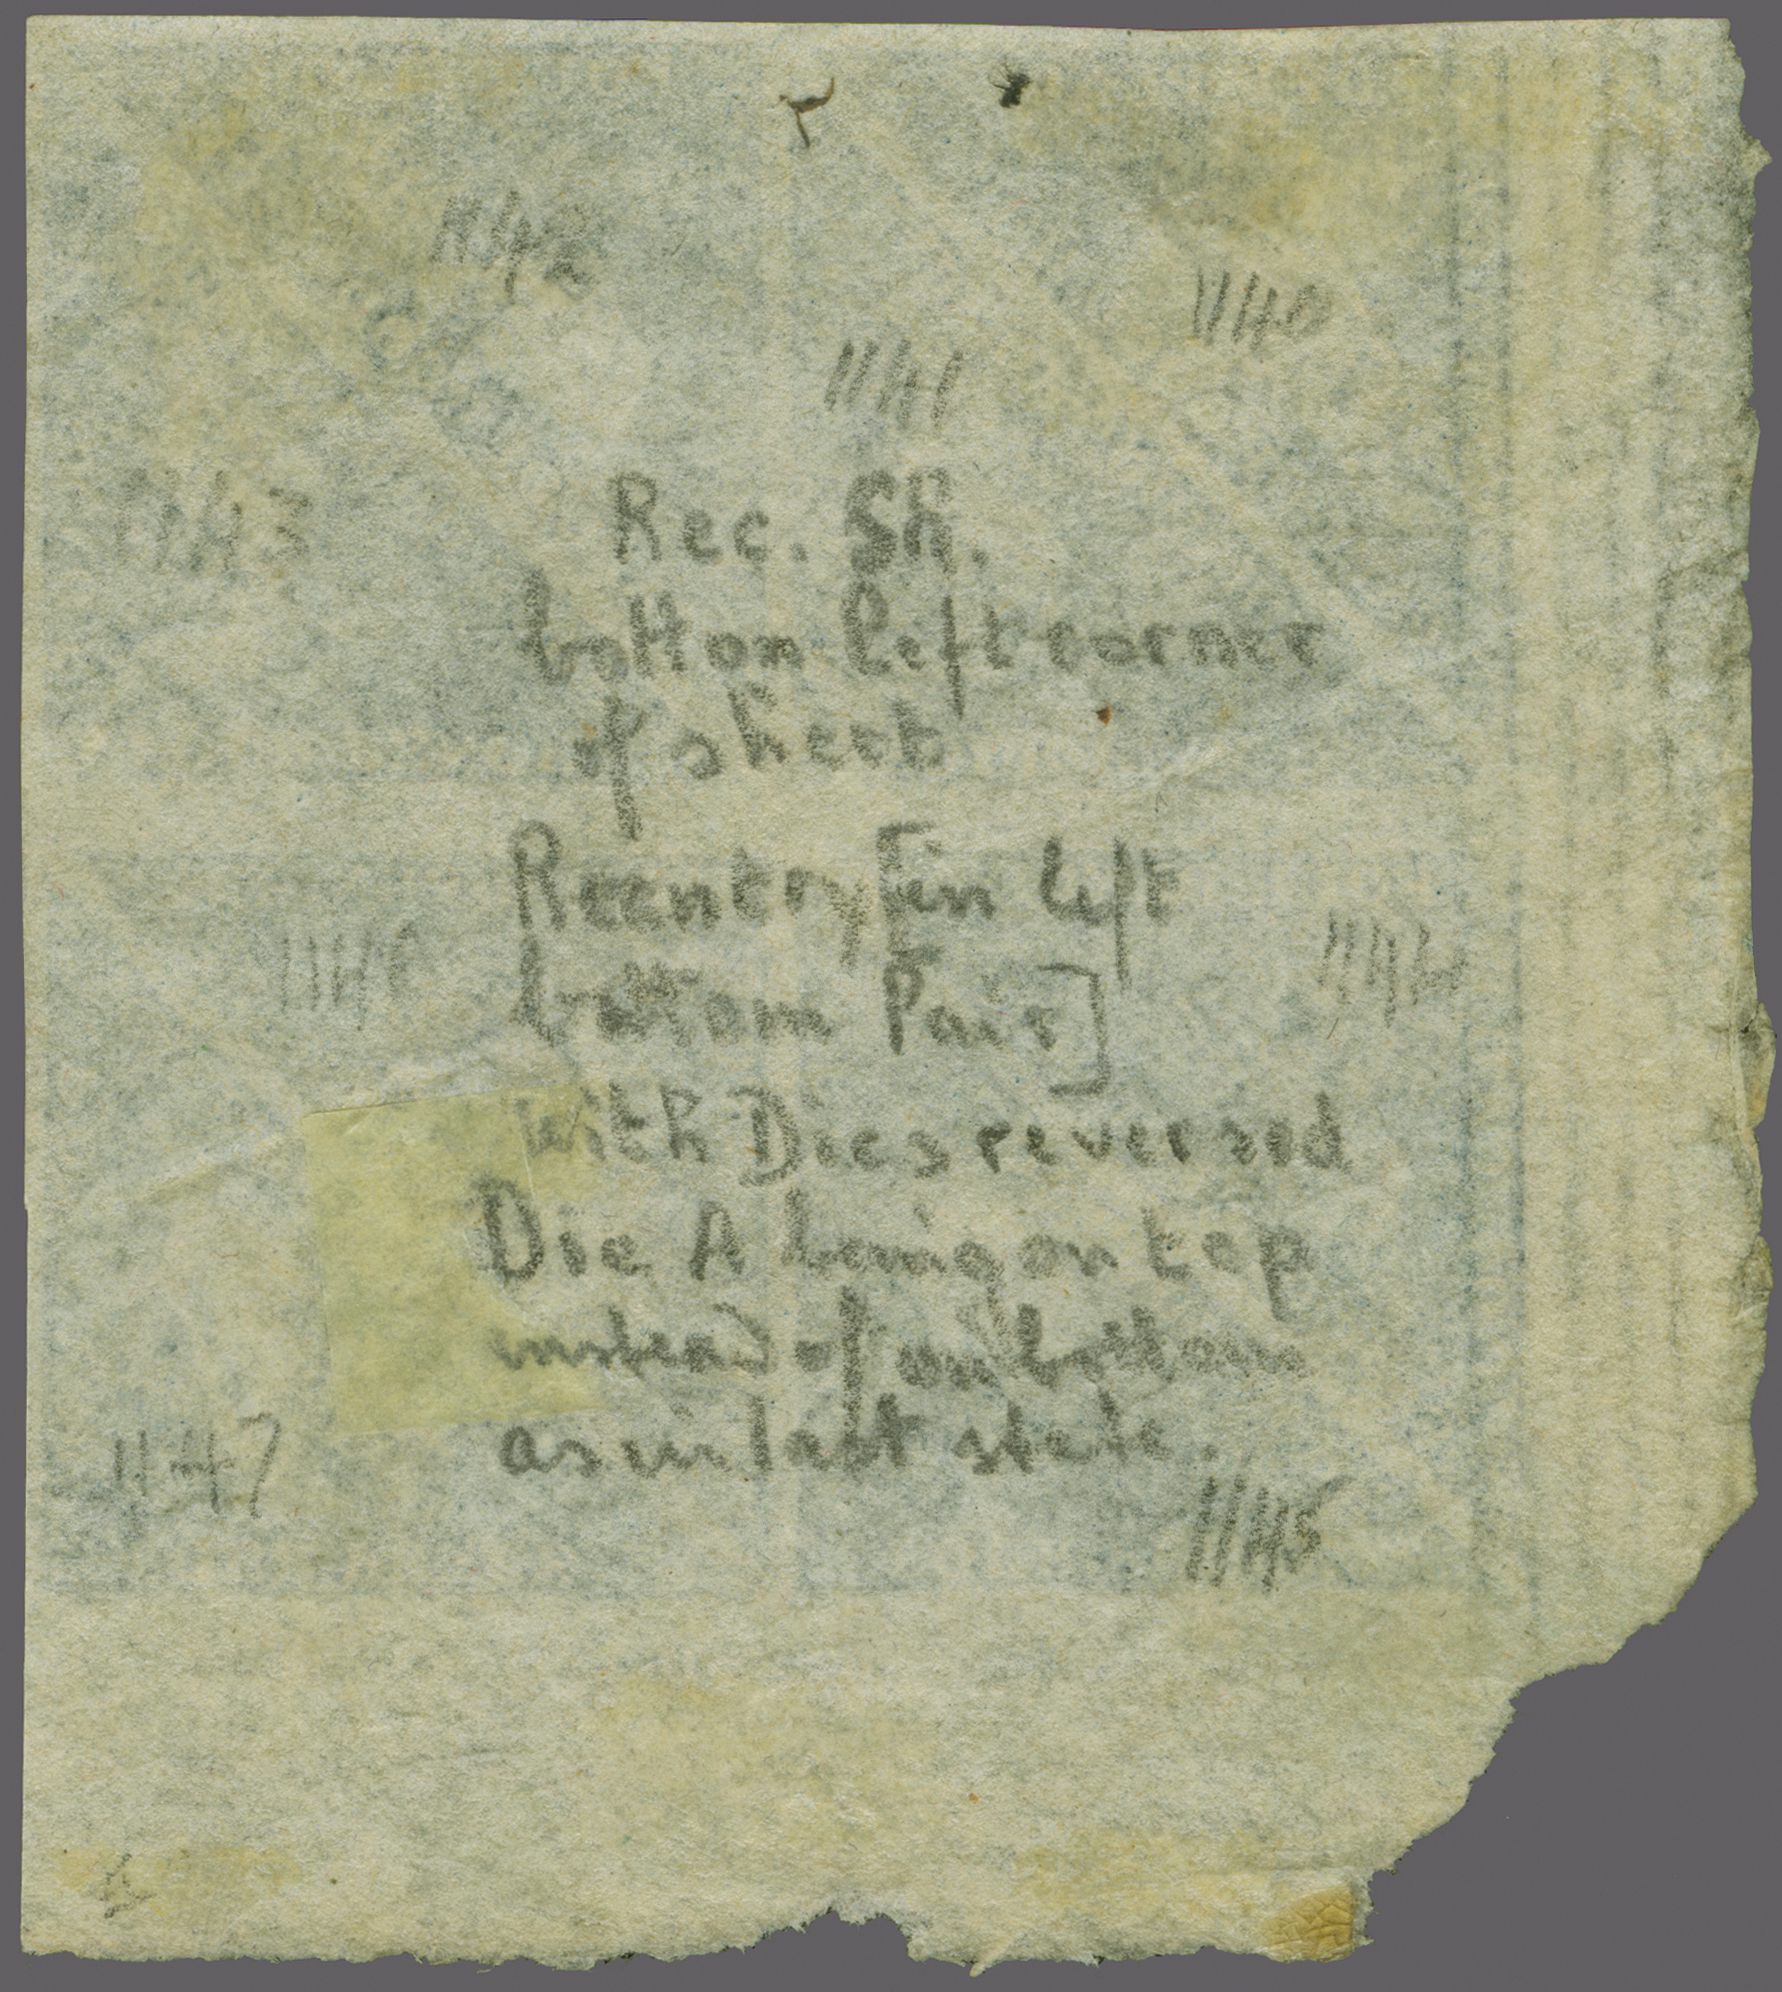 1142
1140
1141
1143
Rec. Sh.
bottom left corner
of sheet
Reentry [in left
bottom Pair]
1144
with Dies reversed
Die A being on top
instead of on bottom
as in last state.
1147
1145